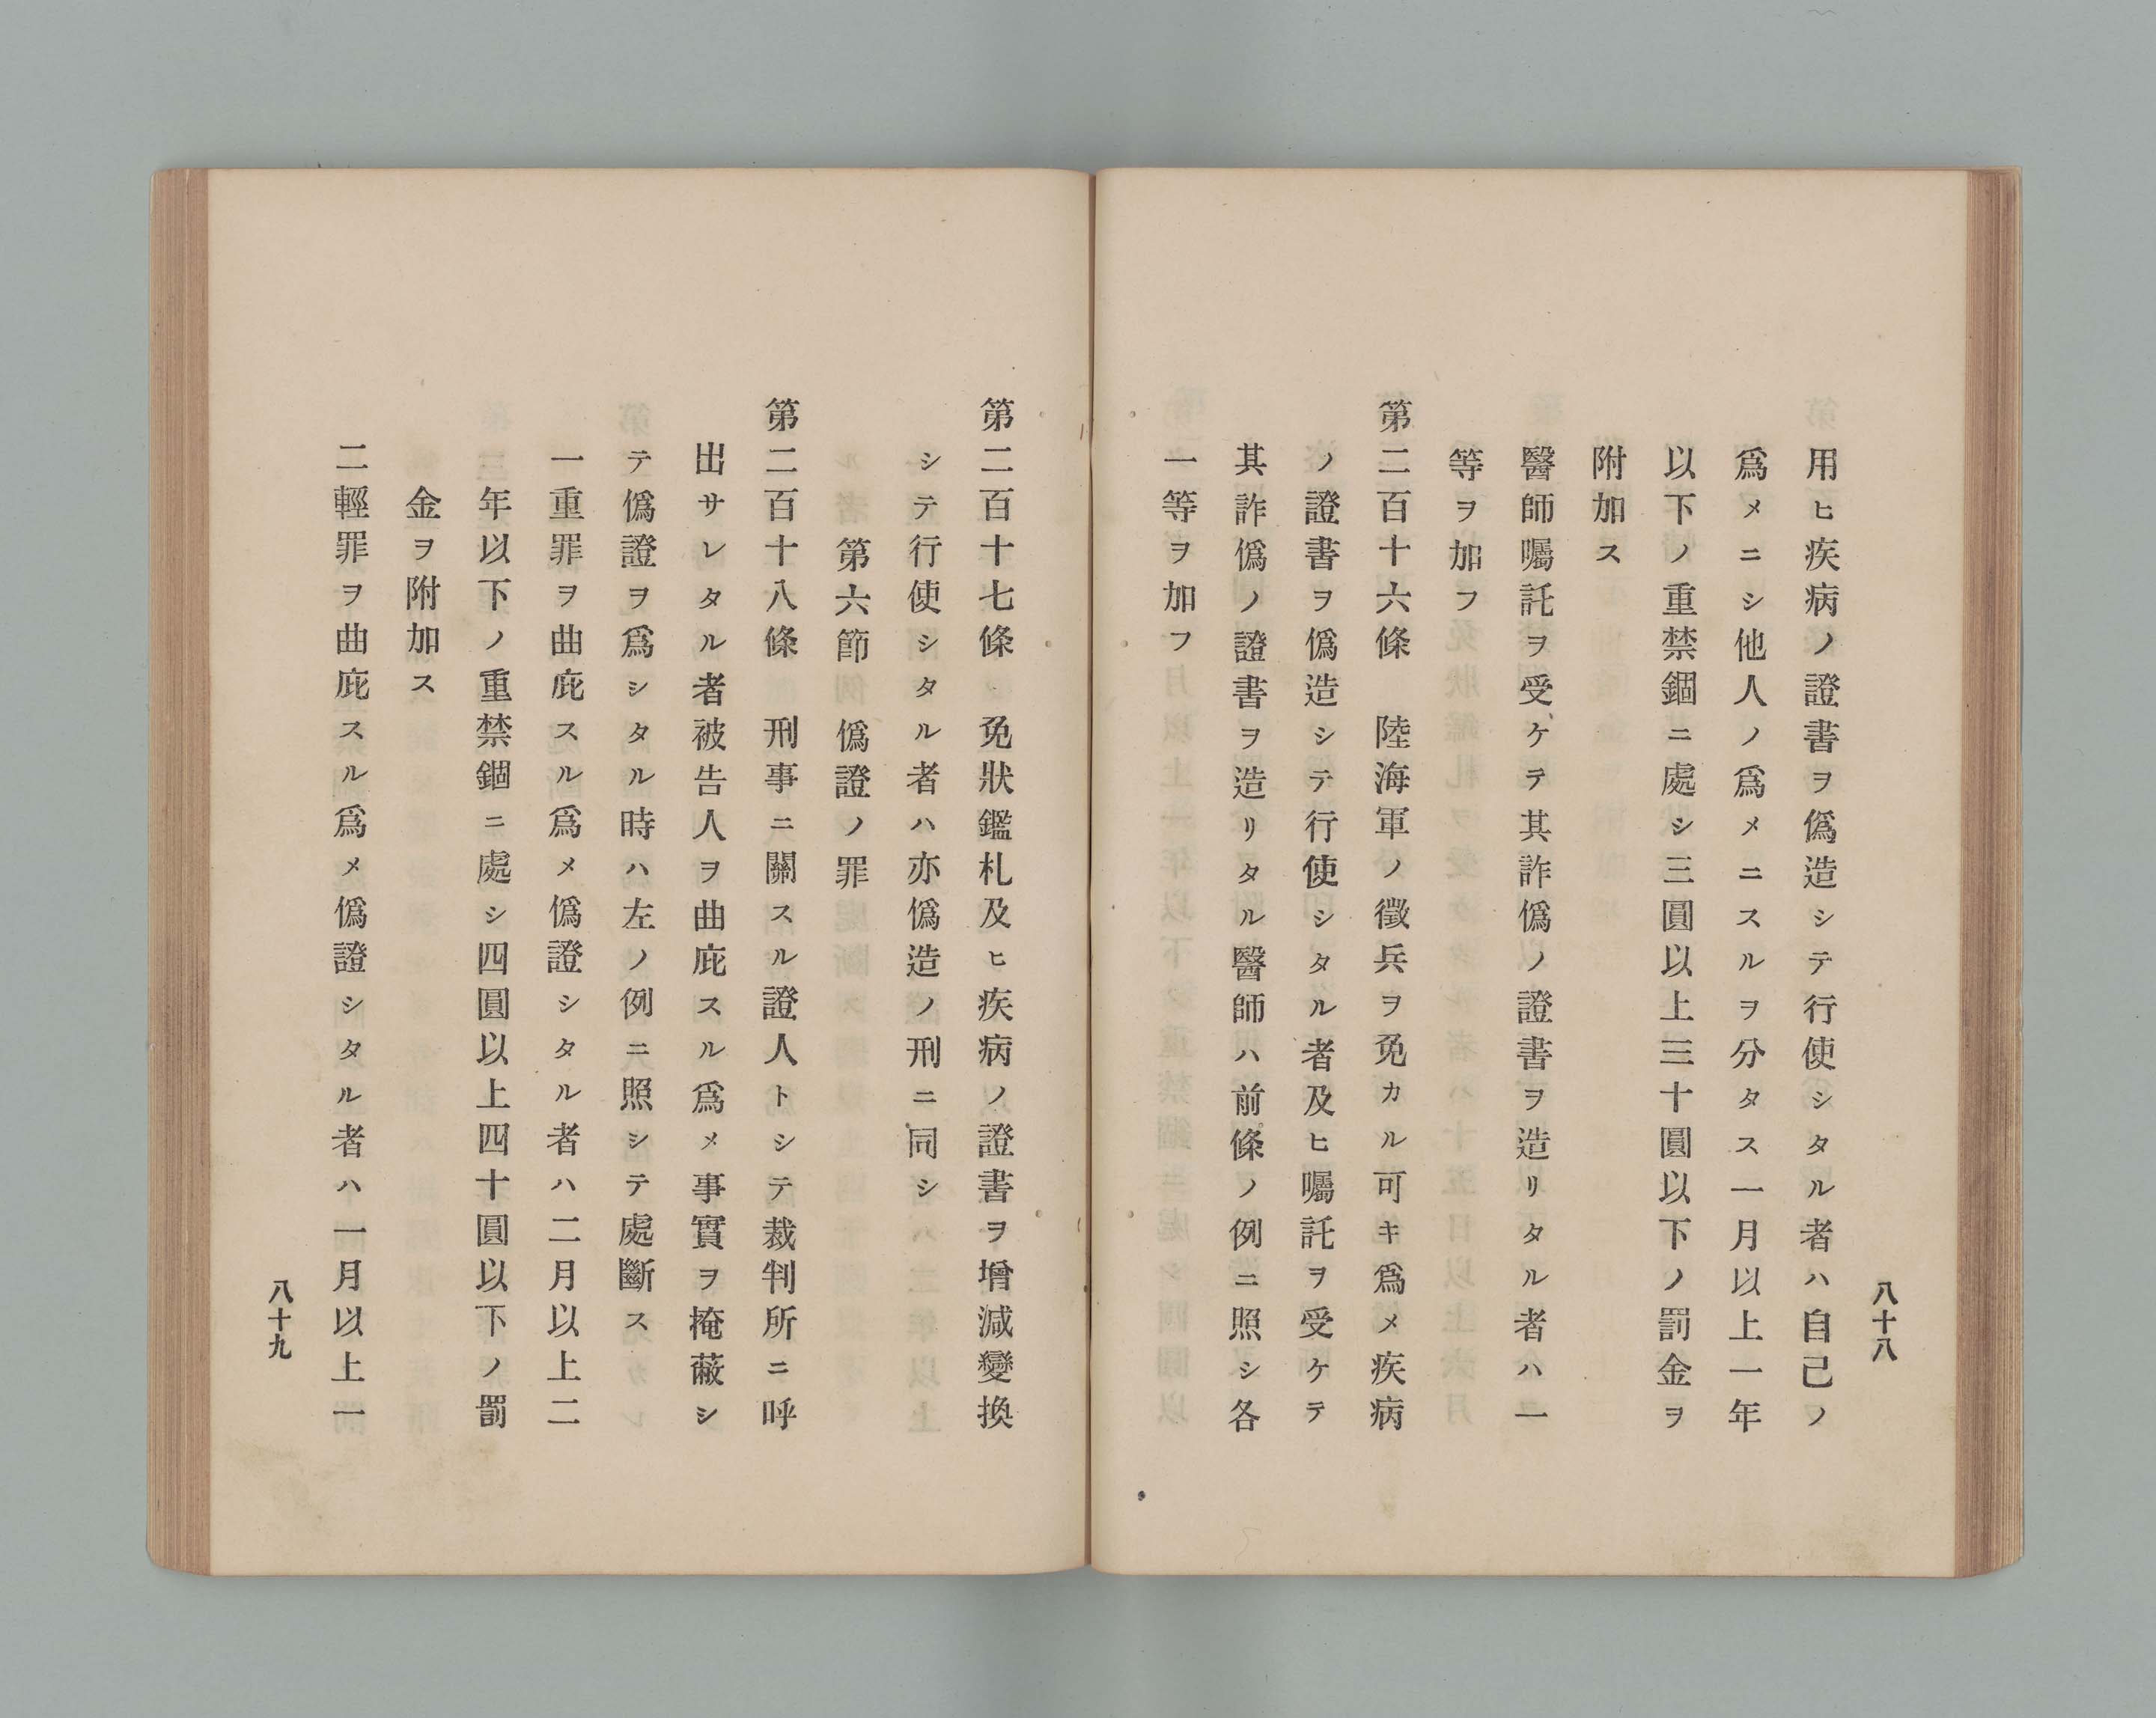 用ヒ疾病ノ證書ヲ僞造シテ行使シタル者ハ自己ノ
爲メニシ他人ノ爲メニスルヲ分タス一月以上一年
以下ノ重禁錮ニ處シ三圓以上三十圓以下ノ罰金ヲ
附加ス
醫師囑託ヲ受ケテ其詐僞ノ證書ヲ造リタル者ハ一
等ヲ加フ
第二百十六條　陸海軍ノ徵兵ヲ免カル可キ爲メ疾病
ノ證書ヲ僞造シテ行使シタル者及ヒ囑託ヲ受ケテ
其詐僞ノ證書ヲ造リタル醫師ハ前條ノ例ニ照シ各
一等ヲ加フ
八十八
第二百十七條　免狀鑑札及ヒ疾病ノ證書ヲ增減變換
シテ行使シタル者ハ亦僞造ノ刑ニ同シ
第六節　僞證ノ罪
第二百十八條　刑事ニ關スル證人トシテ裁判所ニ呼
出サレタル者被告人ヲ曲庇スル爲メ事實ヲ掩蔽シ
テ僞證ヲ爲シタル時ハ左ノ例ニ照シテ處斷ス
一重罪ヲ曲庇スル爲メ僞證シタル者ハ二月以上二
年以下ノ重禁錮ニ處シ四圓以上四十圓以下ノ罰
金ヲ附加ス
二輕罪ヲ曲庇スル爲メ僞證シタル者ハ一月以上一
八十九